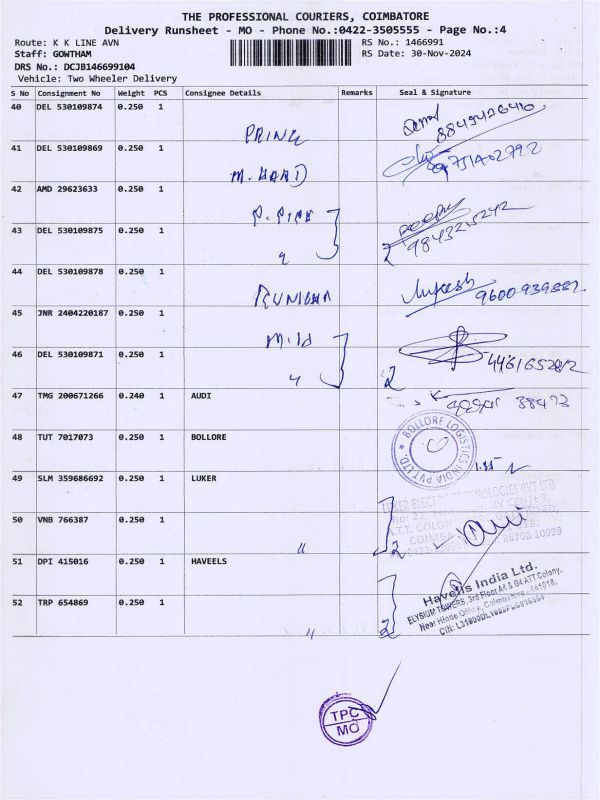 THE PROFESSIONAL COURIERS, COIMBATORE
Delivery Runsheet - MO - Phone No.:0422-3505555 - Page No.:4
Route: K K LINE AVN
RS No.: 1466991
Staff: GOWTHAM
RS Date: 30-Nov-2024
DRS No.: DCJB146699104
Vehicle: Two Wheeler Delivery
S No Consignment No Weight PCS Consignee Details Remarks Seal & Signature
40 DEL 530109874 0.250 1
PRINCE
8849426410
41 DEL 530109869 0.250 1
M. HARI
9751402792
42 AMD 29623633 0.250 1
43 DEL 530109875 0.250 1
9843225242
44 DEL 530109878 0.250 1
Lukesh
45 JNR 2404220187 0.250 1
46 DEL 530109871 0.250 1
2
47 TMG 200671266 0.240 1 AUDI
48 TUT 7017073 0.250 1 BOLLORE
BOLLORE LOGISTICS INDIA PVT LTD.
49 SLM 359686692 0.250 1 LUKER
50 VNB 766387 0.250 1
" 2
51 DPI 415016 0.250 1 HAVEELS
Havells India Ltd.
ELYSIUM TOWERS, 3rd Floor A4 & B4 ATT Colony,
Near Hindu Office, Coimbatore - 641018.
52 TRP 654869 0.250 1
" 2
TPC
MO